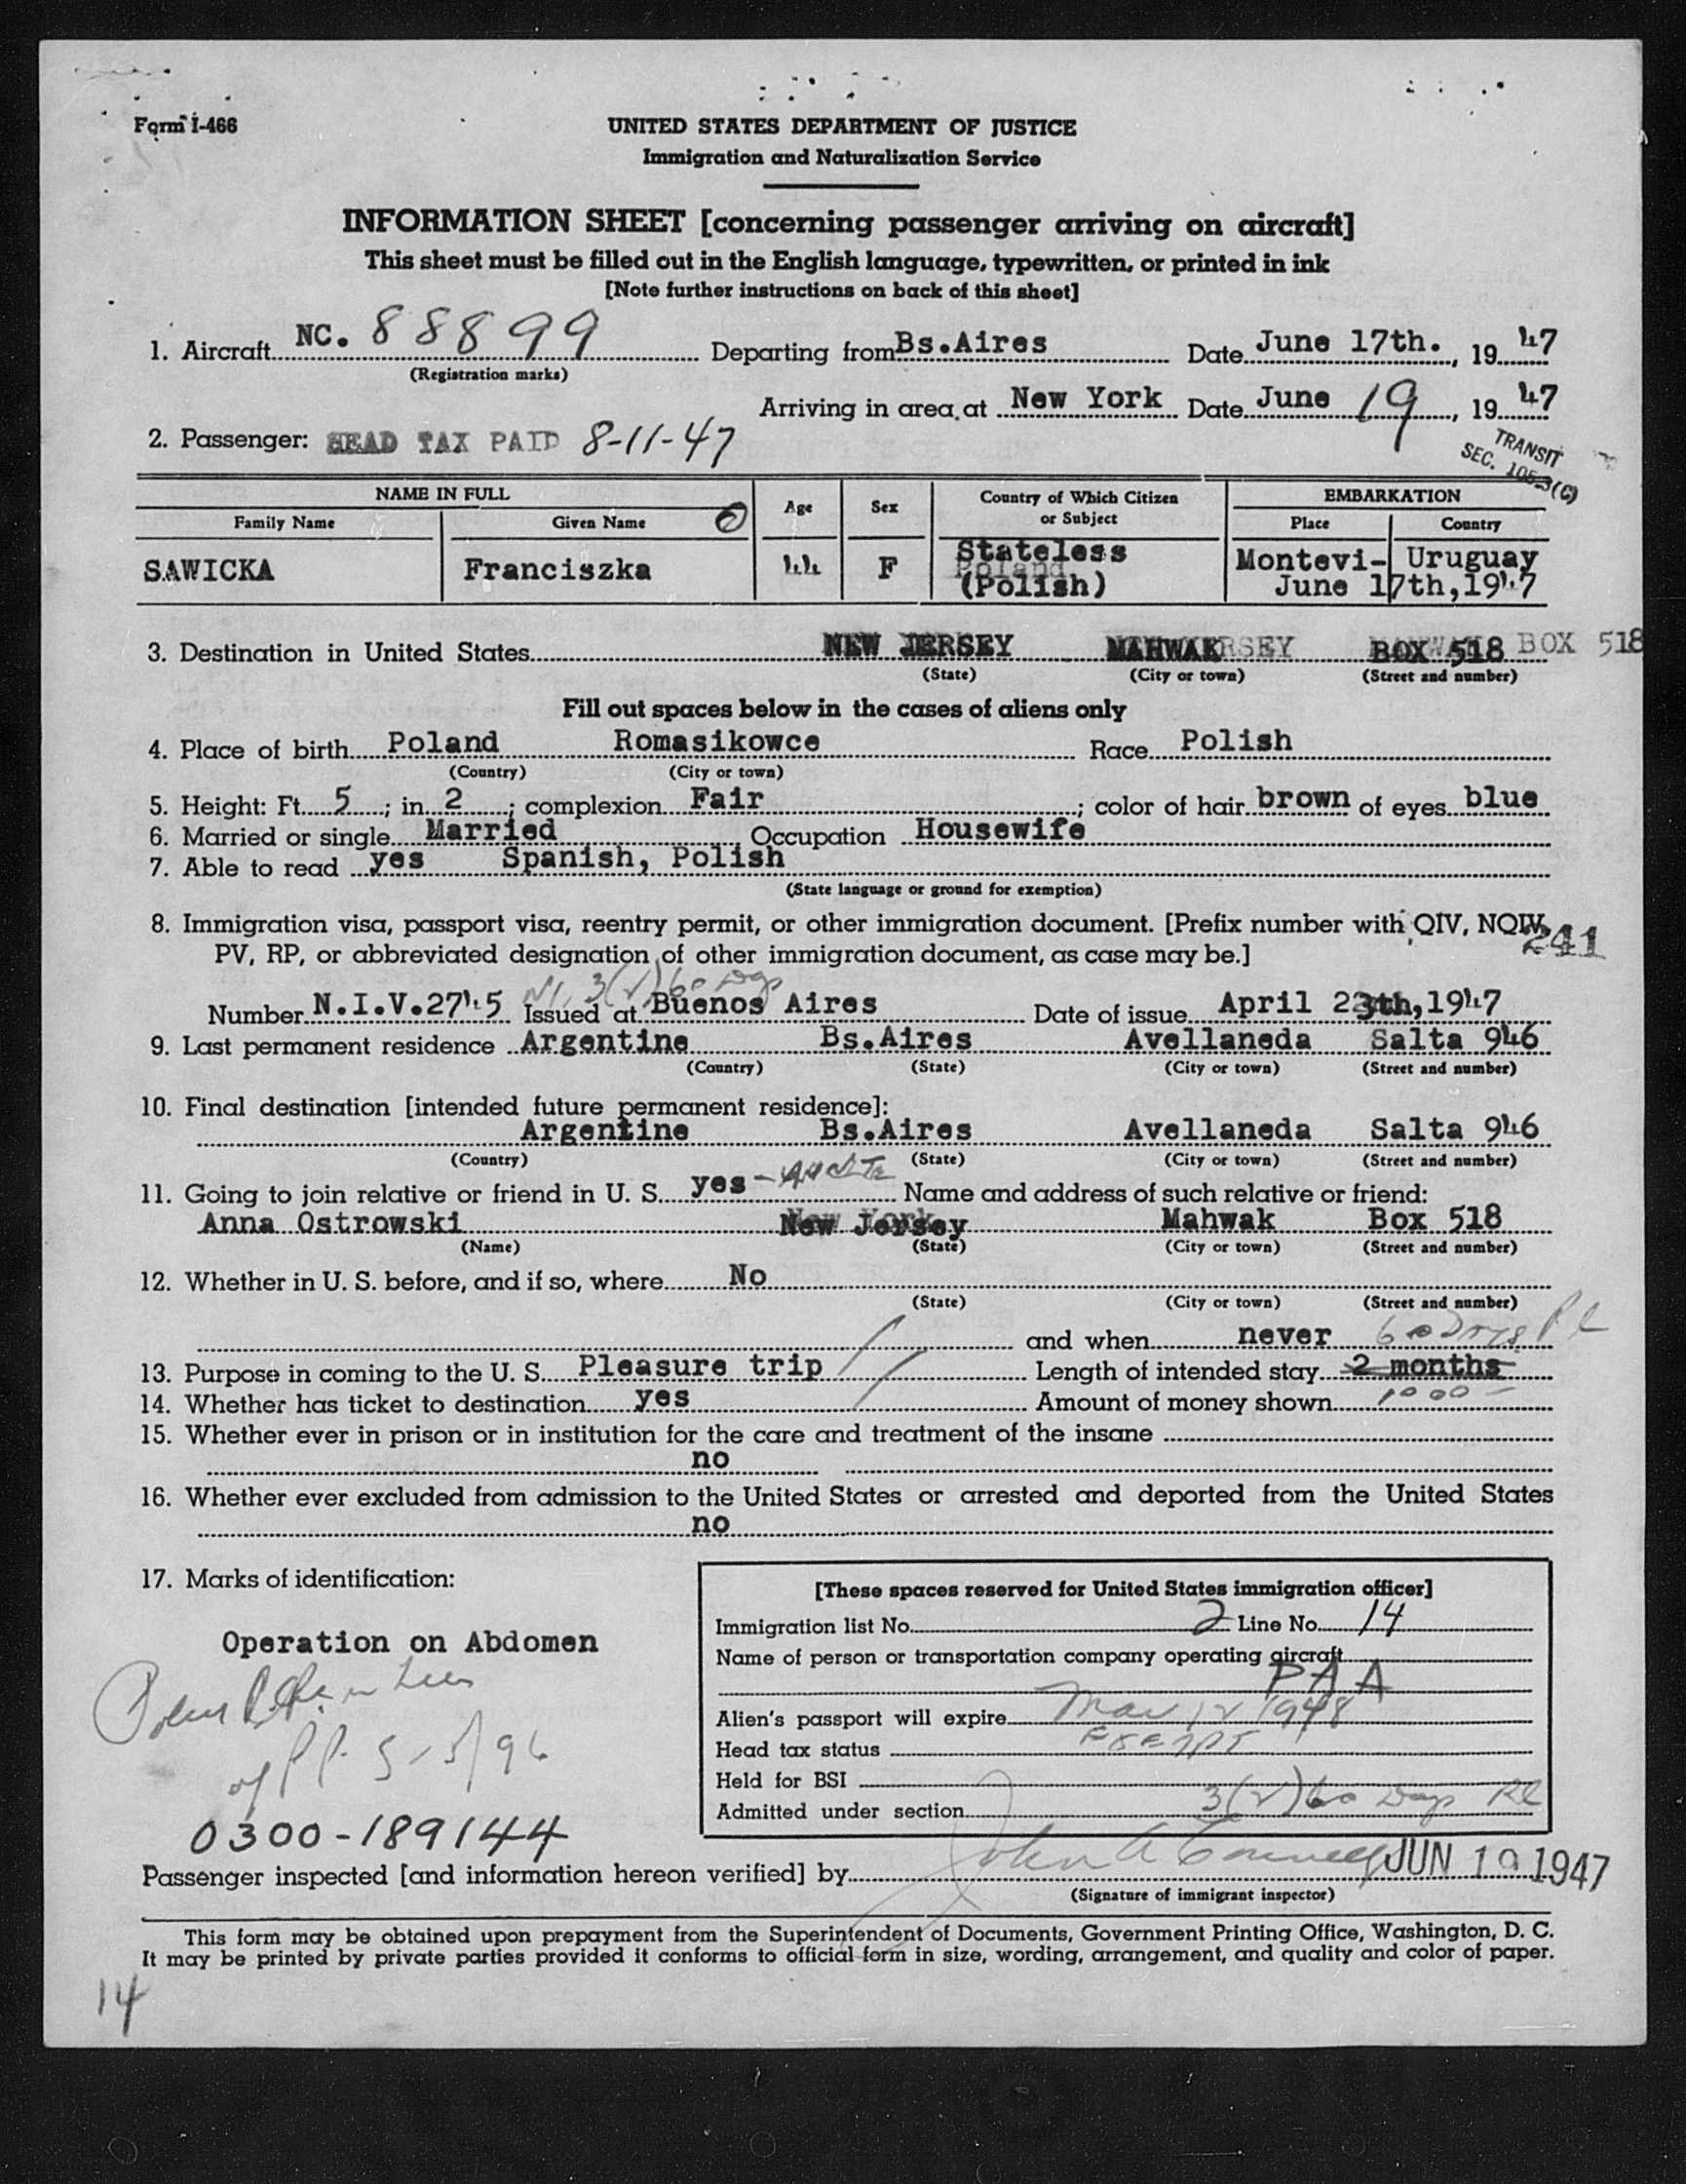 Form I-466
UNITED STATES DEPARTMENT OF JUSTICE
Immigration and Naturalization Service
INFORMATION SHEET [concerning passenger arriving on aircraft]
This sheet must be filled out in the English language, typewritten, or printed in ink
[Note further instructions on back of this sheet]
1. Aircraft NC. 88899 Departing from Bs.Aires Date June 17th., 1947
(Registration marks)
Arriving in area at New York Date June 19, 1947
2. Passenger: HEAD TAX PAID 8-11-47
TRANSIT
SEC. 105-3(C)
NAME IN FULL Age Sex Country of Which Citizen or Subject EMBARKATION
Family Name Given Name Place Country
SAWICKA Franciszka 44 F Stateless Poland (Polish) Montevi- Uruguay
June 17th, 1947
3. Destination in United States NEW JERSEY MAHWAK BOX 518 BOX 518
(State) (City or town) (Street and number)
Fill out spaces below in the cases of aliens only
4. Place of birth Poland Romasikowce Race Polish
(Country) (City or town)
5. Height: Ft. 5; in. 2; complexion Fair; color of hair brown of eyes blue
6. Married or single Married Occupation Housewife
7. Able to read yes Spanish, Polish
(State language or ground for exemption)
8. Immigration visa, passport visa, reentry permit, or other immigration document. [Prefix number with QIV, NQIV,
PV, RP, or abbreviated designation of other immigration document, as case may be.] 241
3(2) 60 Days
Number N.I.V.2745 Issued at Buenos Aires Date of issue April 23th, 1947
9. Last permanent residence Argentine Bs.Aires Avellaneda Salta 946
(Country) (State) (City or town) (Street and number)
10. Final destination [intended future permanent residence]:
Argentine Bs.Aires Avellaneda Salta 946
(Country) (State) (City or town) (Street and number)
11. Going to join relative or friend in U. S. yes Name and address of such relative or friend:
Anna Ostrowski New Jersey Mahwak Box 518
(Name) (State) (City or town) (Street and number)
12. Whether in U. S. before, and if so, where No
(State) (City or town) (Street and number)
and when never 60 Days
13. Purpose in coming to the U. S. Pleasure trip Length of intended stay 2 months
14. Whether has ticket to destination yes Amount of money shown 1000-
15. Whether ever in prison or in institution for the care and treatment of the insane
no
16. Whether ever excluded from admission to the United States or arrested and deported from the United States
no
17. Marks of identification:
Operation on Abdomen
0300-189144
[These spaces reserved for United States immigration officer]
Immigration list No. 2 Line No. 14
Name of person or transportation company operating aircraft
PAA
Alien's passport will expire Mar 12 1948
Head tax status EXEMPT
Held for BSI
Admitted under section 3(2) 60 Days
Passenger inspected [and information hereon verified] by John A JUN 19 1947
(Signature of immigrant inspector)
This form may be obtained upon prepayment from the Superintendent of Documents, Government Printing Office, Washington, D. C.
It may be printed by private parties provided it conforms to official form in size, wording, arrangement, and quality and color of paper.
14